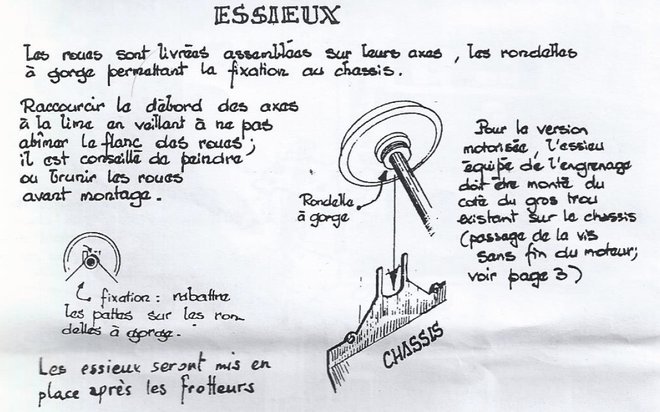 ESSIEUX
Les roues sont livrées assemblées sur leurs axes, les rondelles
à gorge permettant la fixation au chassis.
Raccourcir le débord des axes
à la lime en veillant à ne pas
abîmer le flanc des roues;
il est conseillé de peindre
ou brunir les roues
avant montage.
Rondelle
à gorge
Pour la version
motorisée, l'essieu
équipé de l'engrenage
doit être monté du
coté du gros trou
existant sur le chassis
(passage de la vis
sans fin du moteur;
voir page 3)
fixation: rabattre
les pattes sur les ron-
delles à gorge.
CHASSIS
Les essieux seront mis en
place après les frotteurs